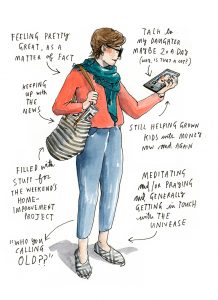 FEELING PRETTY
GREAT, AS A
MATTER OF FACT
TALK to
MY DAUGHTER
MAYBE 2x A DAY
(WAIT, IS THAT A LOT?)
KEEPING
UP with
THE NEWS
STILL HELPING GROWN
KIDS with MONEY
NOW and AGAIN
FILLED with
STUFF for
THE WEEKEND'S
HOME-
IMPROVEMENT
PROJECT
MEDITATING
and/or PRAYING
and GENERALLY
GETTING in TOUCH
with THE
UNIVERSE
"WHO YOU
CALLING
OLD??"